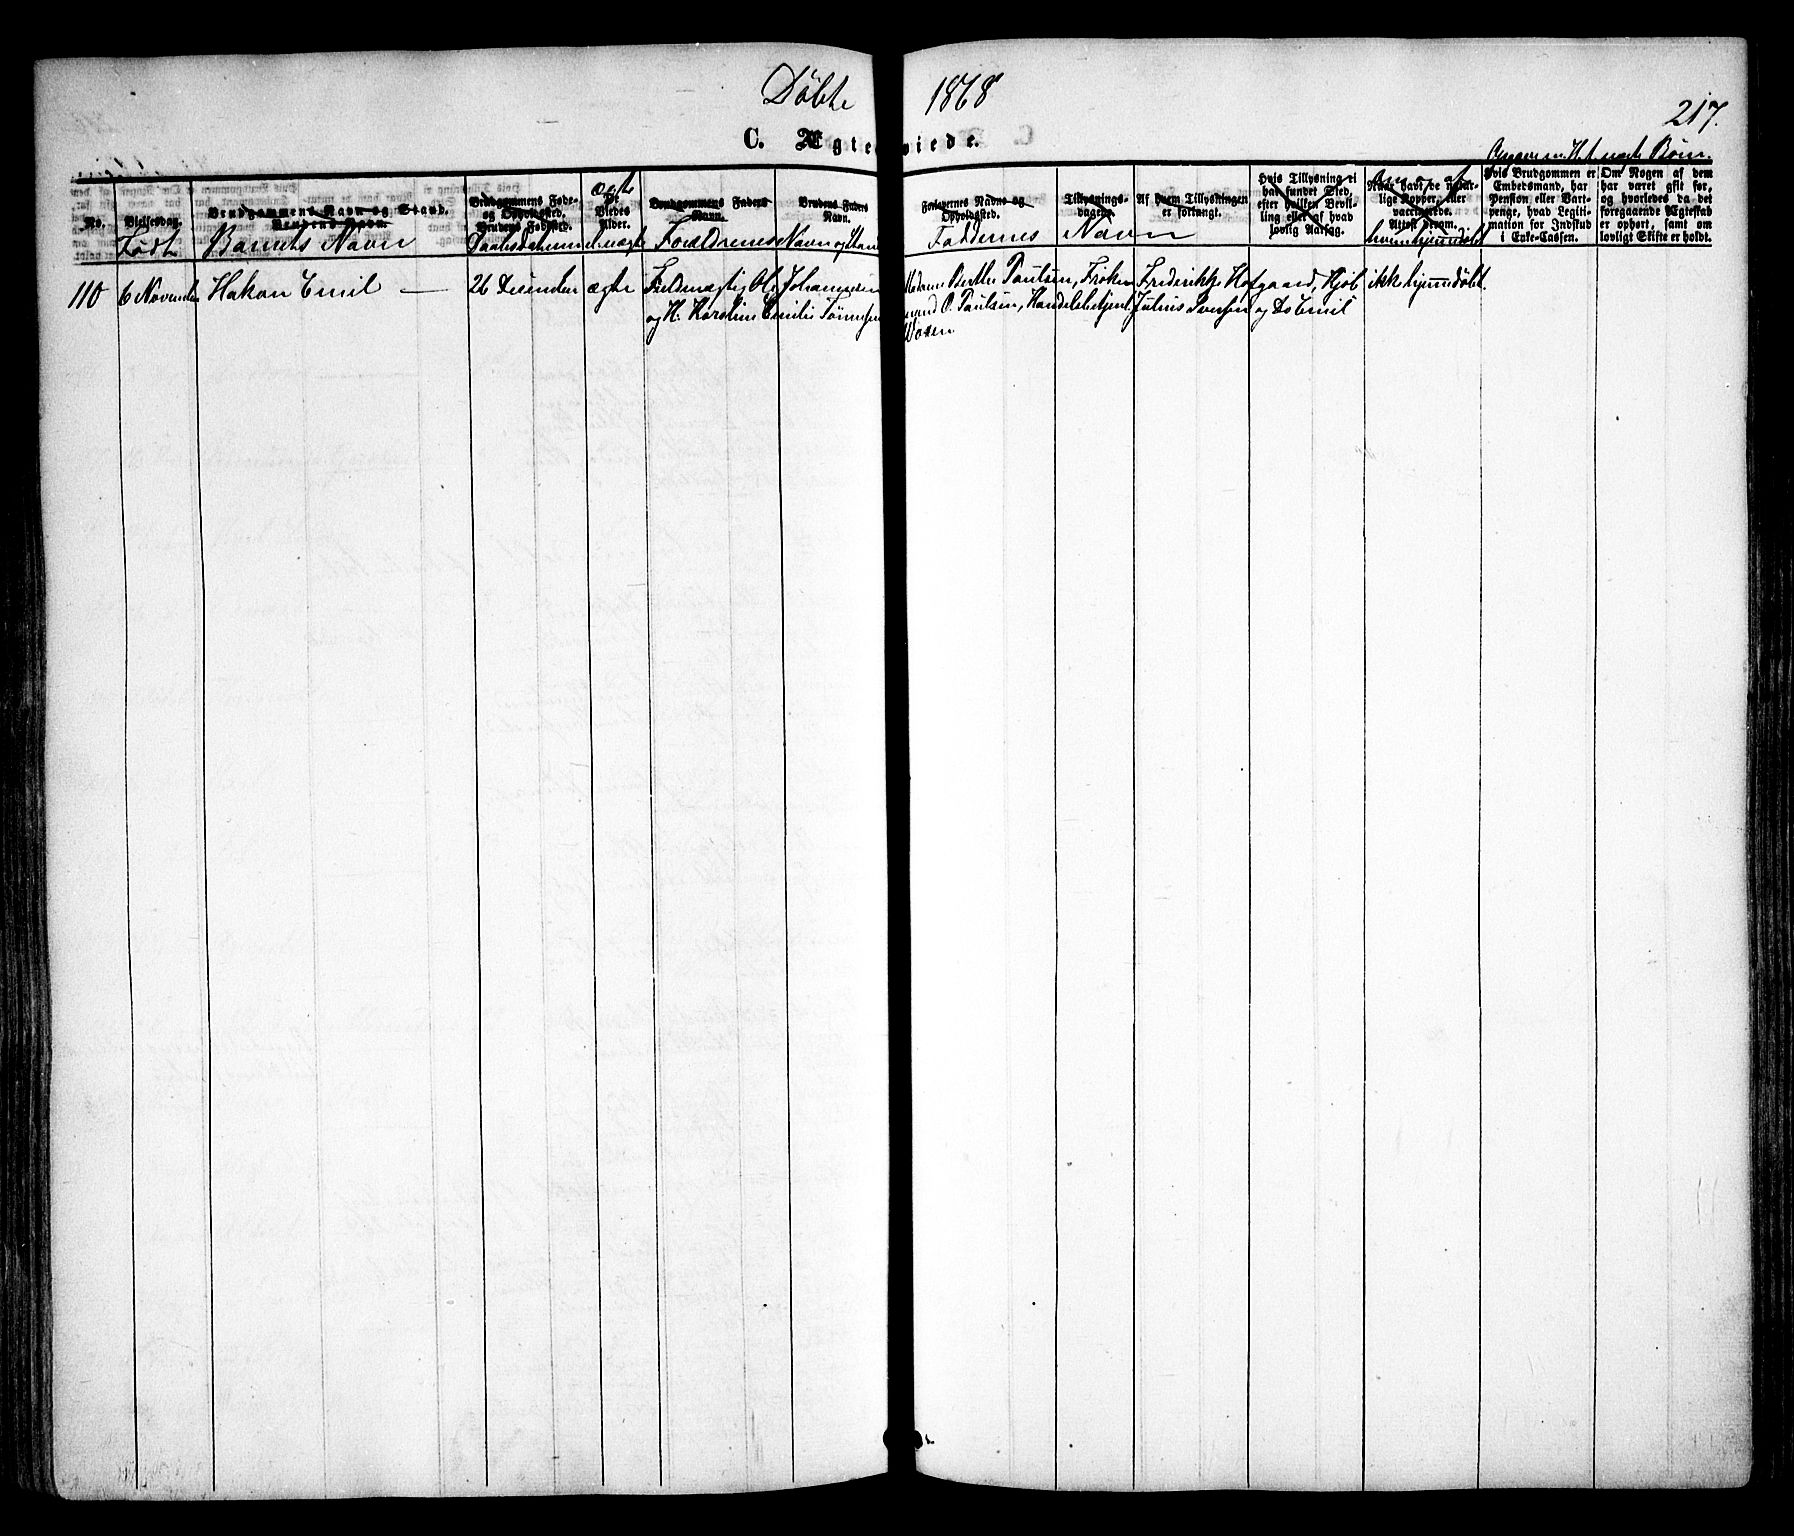 Döbte 1868
217.
C. Ægteviede.
No.
Vielsesdag.
Födt
Brudgommens Navn og Stand.
Brudens Navn.
Barnets Navn
Brudgommens Føde- og Opholdssted.
Brudens Fødested.
Daabsdatum
ægte
De Viedes Alder.
uægte
Brudgommens Faders Navn.
Brudens Faders Navn.
Forældrenes Navn og Stand
Forlovernes Navne og Opholdssted.
Tillysnings-dagen.
Af hvem Tillysningen er forlangt.
Faddernes Navn
Hvis Tillysning ei har fundet Sted, efter hvilken Bevilling eller af hvad lovlig Aarsag.
Naar havt de naturlige Kopper, eller vaccinerede. Attest derom.
hjemmedøbt
Hvis Brudgommen er Embedsmand, har Pension eller Vartpenge, hvad Legitimation for Indskud i Enke-Cassen.
Om Nogen af dem har været gift før, og hvorledes da det foregaaende Ægteskab er ophørt, samt om lovligt Skifte er holdt.
110 6 November Hakon Emil — 26 December ægte Fuldmægtig Ole Johannesen Madam Berthe Paulsen, Frøken Frederikke Hofgaard, Kjöb ikke hjemmedøbt.
og H. Karoline Emilie Tønnesen mand O. Paulsen, Handelsbetjent Julius Iversen og Do Emil